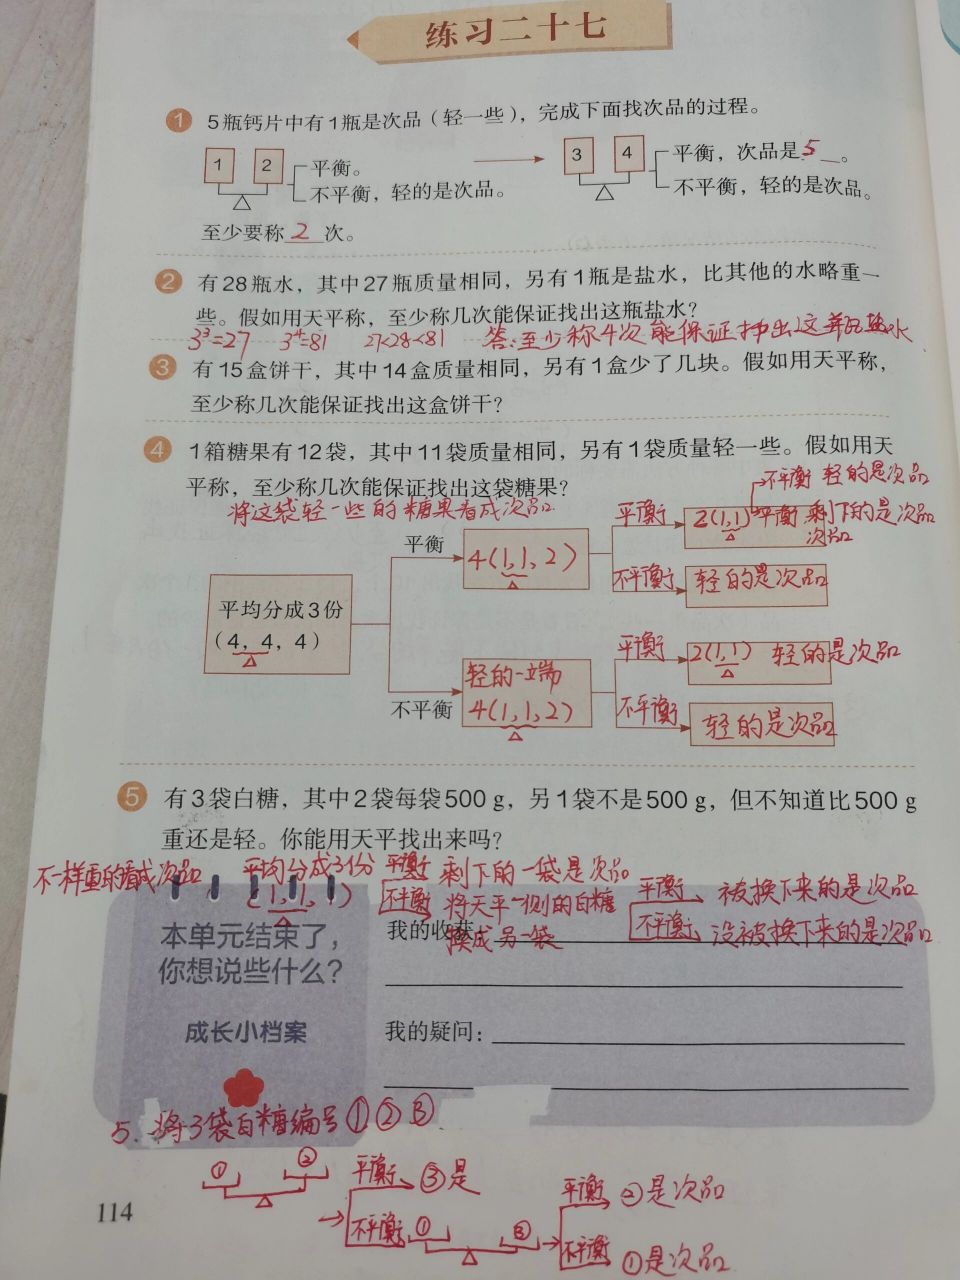 练习二十七
1 5瓶钙片中有1瓶是次品（轻一些），完成下面找次品的过程。
1 2 平衡。
不平衡，轻的是次品。
3 4 平衡，次品是5。
不平衡，轻的是次品。
至少要称2次。
2 有28瓶水，其中27瓶质量相同，另有1瓶是盐水，比其他的水略重一
些。假如用天平称，至少称几次能保证找出这瓶盐水？
3³=27 3⁴=81 27<28<81 答：至少称4次能保证找出这瓶盐水
3 有15盒饼干，其中14盒质量相同，另有1盒少了几块。假如用天平称，
至少称几次能保证找出这盒饼干？
4 1箱糖果有12袋，其中11袋质量相同，另有1袋质量轻一些。假如用天
平称，至少称几次能保证找出这袋糖果？
将这袋轻一些的糖果看成次品
不平衡 轻的是次品
平均分成3份
（4，4，4）
平衡
4(1,1,2)
平衡
2(1,1) 平衡 剩下的是次品
次品
不平衡
轻的是次品
不平衡
轻的一端
4(1,1,2)
平衡
2(1,1) 轻的是次品
不平衡
轻的是次品
5 有3袋白糖，其中2袋每袋500 g，另1袋不是500 g，但不知道比500 g
重还是轻。你能用天平找出来吗？
不一样重的看成次品
平均分成3份
(1,1,1)
平衡 剩下的一袋是次品
不平衡 将天平一侧的白糖
换成另一袋
平衡 被换下来的是次品
不平衡 没被换下来的是次品
本单元结束了，
你想说些什么？
成长小档案
我的收获：
我的疑问：
5. 将3袋白糖编号①②③
① ②
平衡 ③是
不平衡 ① ③
平衡 ②是次品
不平衡 ①是次品
114